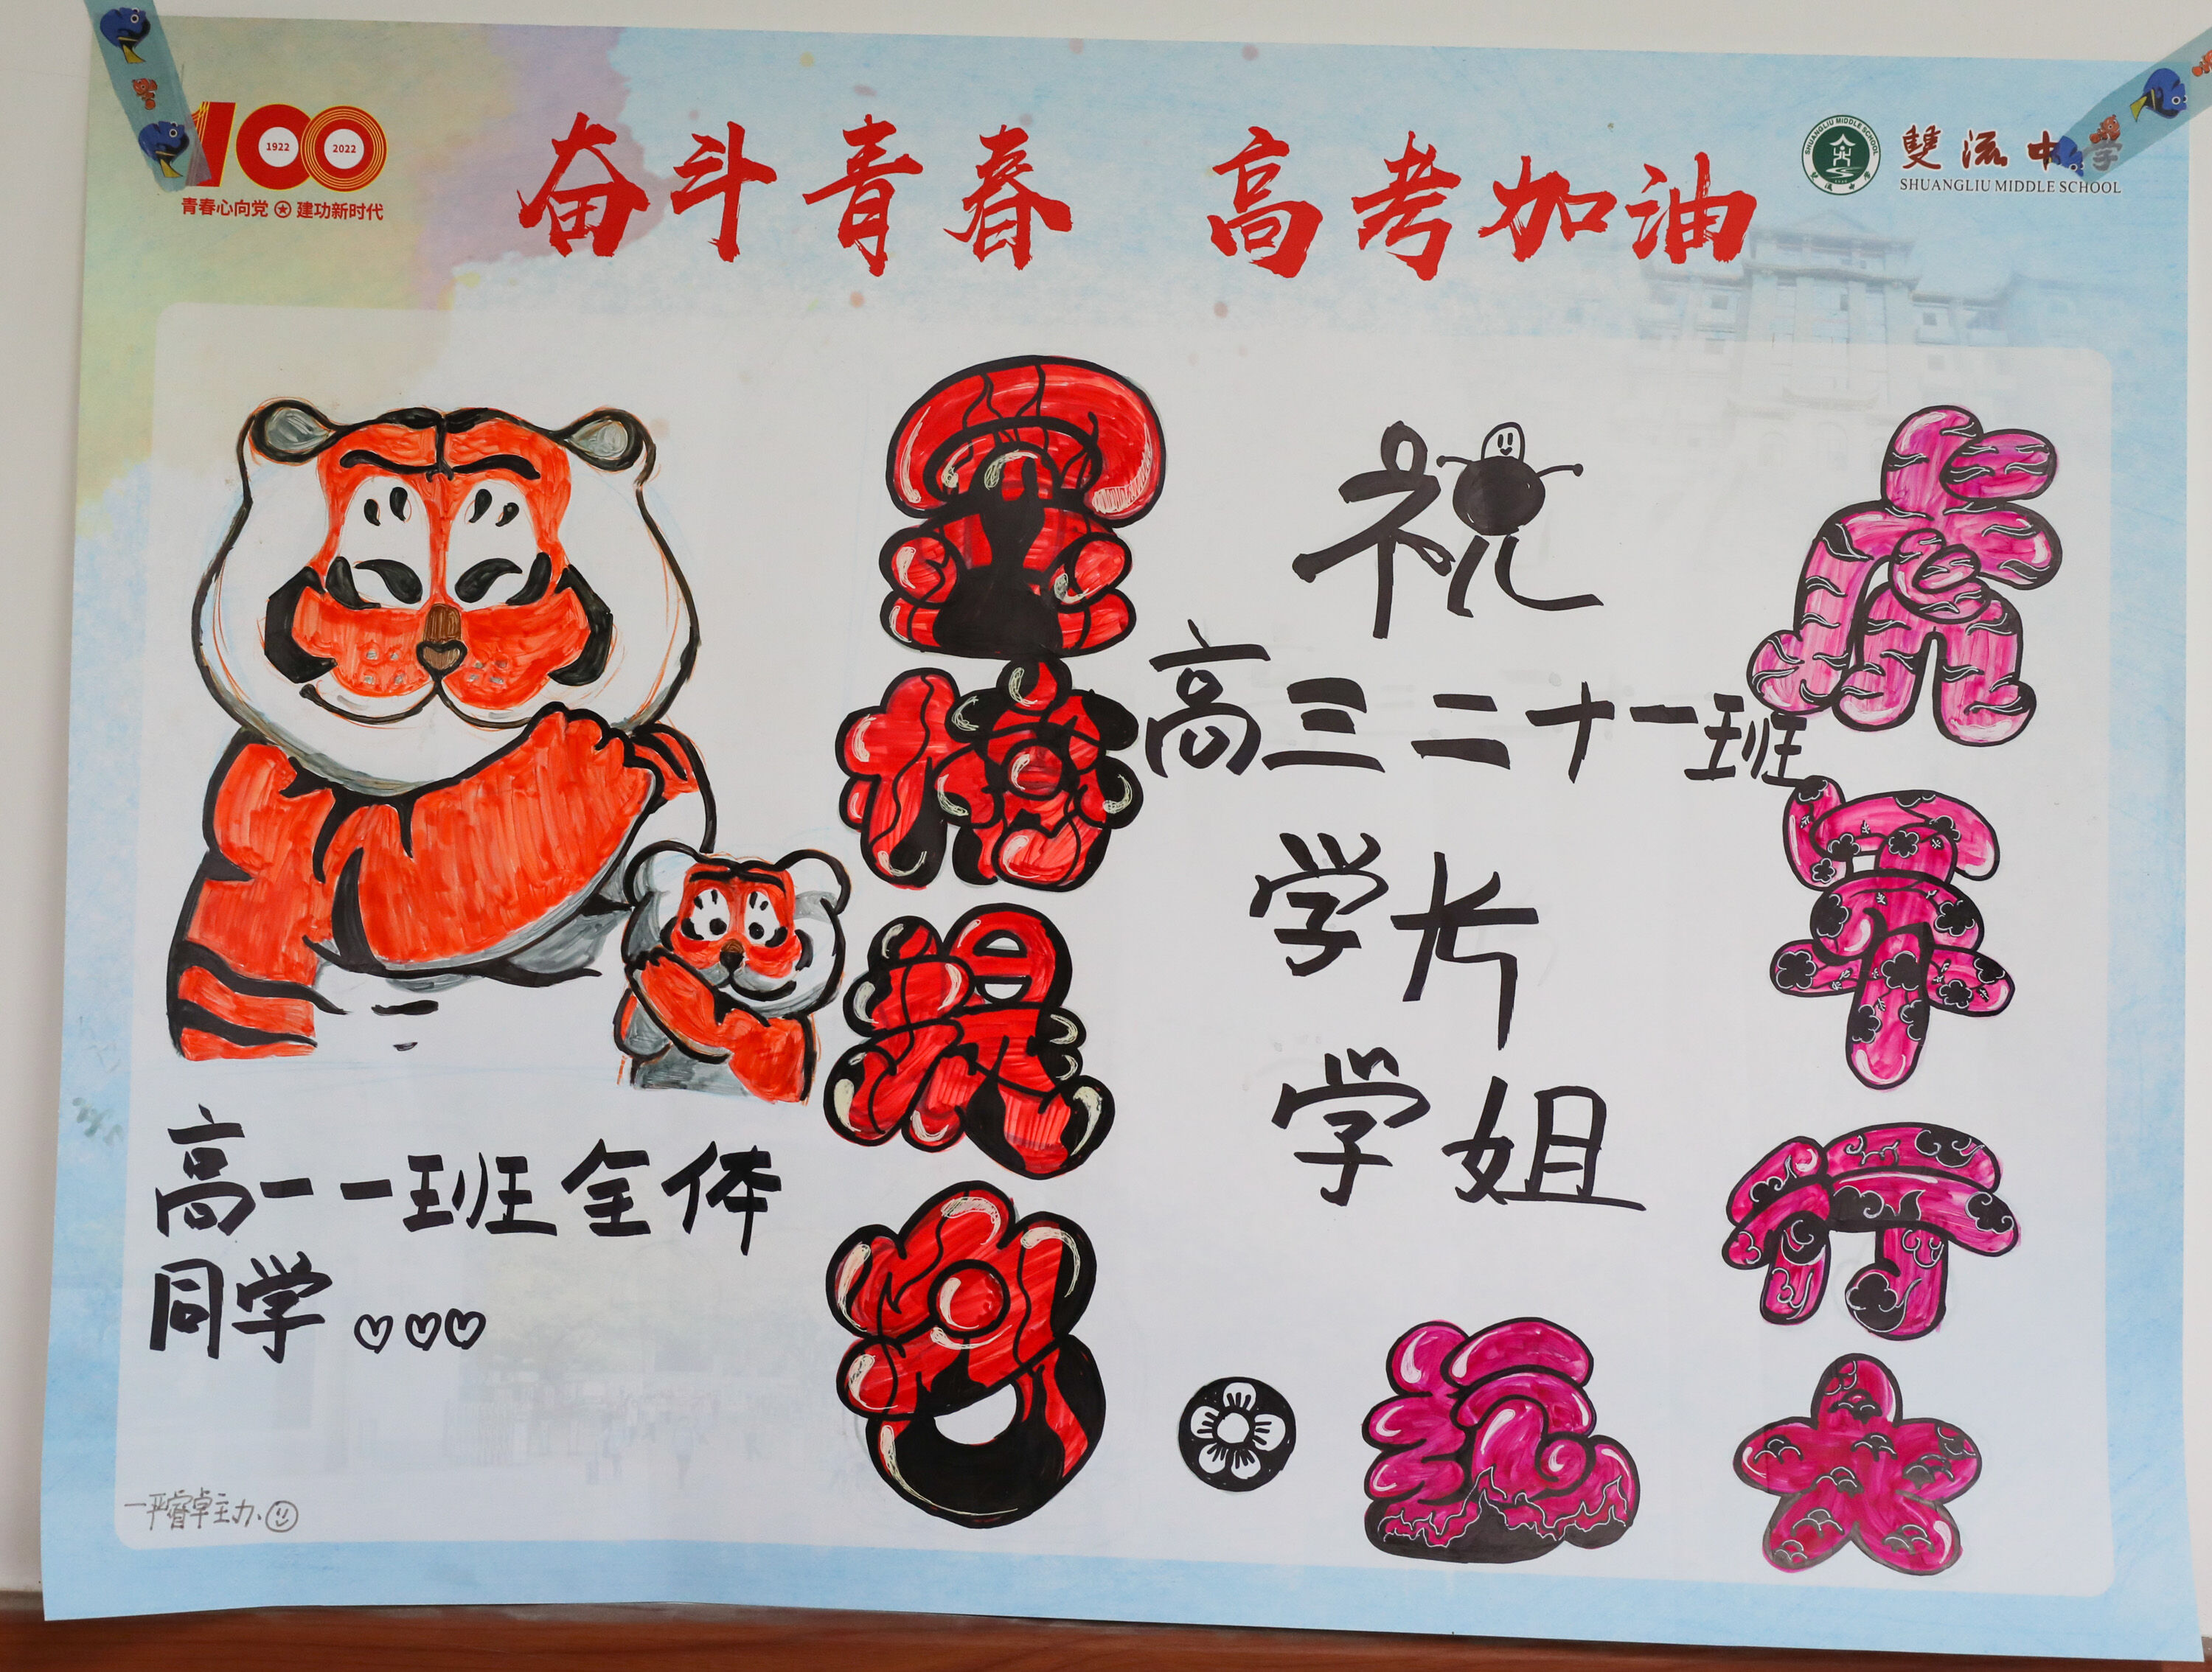 100
1922
2022
青春心向党 建功新时代
奋斗青春 高考加油
SHUANGLIU MIDDLE SCHOOL
雙流中学
SHUANGLIU MIDDLE SCHOOL
祝
高三二十一班
学长
学姐
虎年行大
运
金榜提名
高一一班全体
同学
—严睿卓主办.